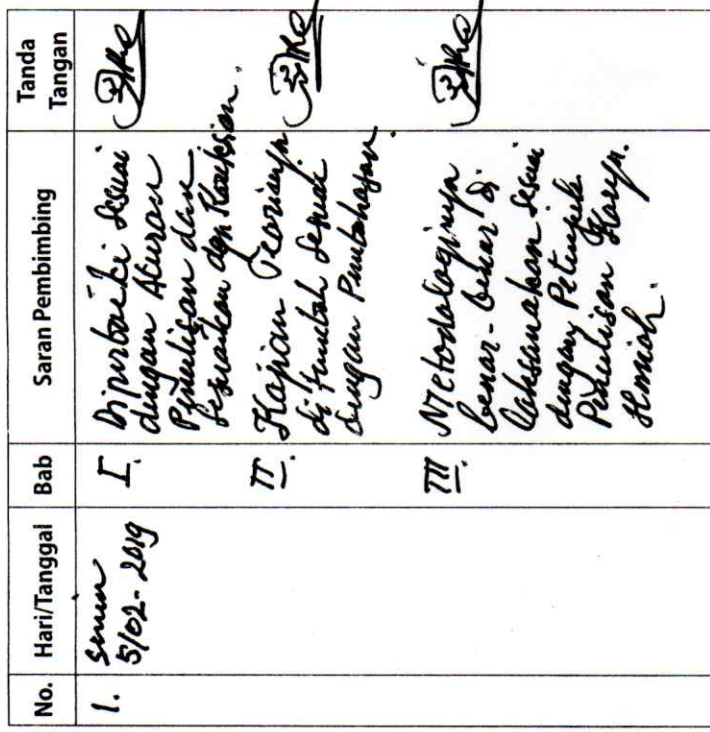 No.
Hari/Tanggal
Bab
Saran Pembimbing
Tanda
Tangan
1.
Senin
5/02-2019
I.
Diperbaiki sesuai
dengan Aturan
Penulisan dan
Sesuaikan dgn Koreksian.
II.
Kajian Teorinya
di tambah sesuai
dengan Pembahasan.
III.
Metodologinya
benar-benar di
laksanakan sesuai
dengan Petunjuk
Penulisan Karya
Ilmiah.